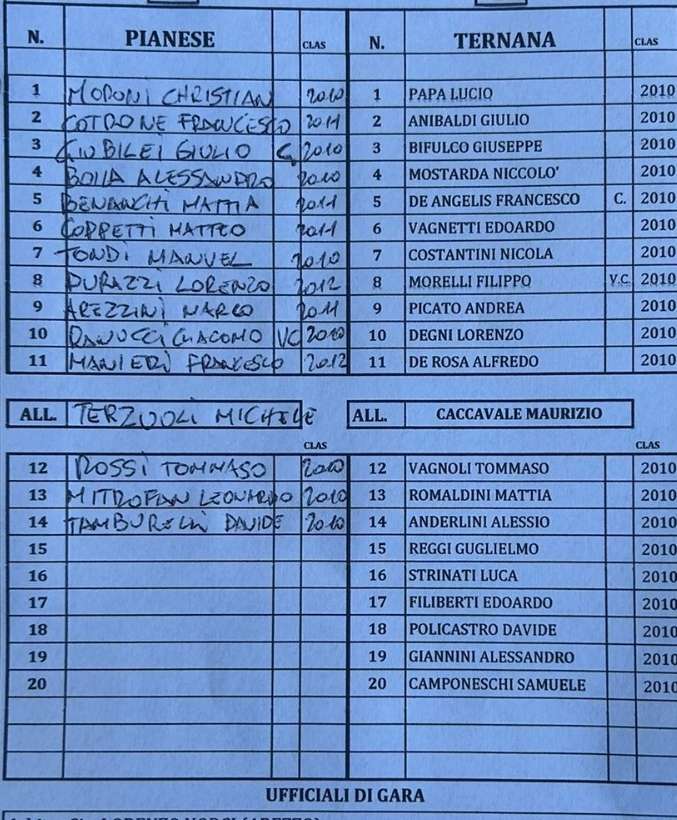 N. PIANESE CLAS N. TERNANA CLAS
1 MORONI CHRISTIAN 2010 1 PAPA LUCIO 2010
2 COTRONE FRANCESCO 2011 2 ANIBALDI GIULIO 2010
3 GIUBILEI GIULIO C. 2010 3 BIFULCO GIUSEPPE 2010
4 ALESSANDRO 2010 4 MOSTARDA NICCOLO' 2010
5 MATTIA 2011 5 DE ANGELIS FRANCESCO C. 2010
6 MATTEO 2011 6 VAGNETTI EDOARDO 2010
7 TONDI MANUEL 2010 7 COSTANTINI NICOLA 2010
8 DURAZZI LORENZO 2012 8 MORELLI FILIPPO V.C. 2010
9 AREZZINI MARCO 2011 9 PICATO ANDREA 2010
10 RANUCCI GIACOMO VC 2010 10 DEGNI LORENZO 2010
11 MANIERI FRANCESCO 2012 11 DE ROSA ALFREDO 2010
ALL. TERZUOLI MICHELE ALL. CACCAVALE MAURIZIO
CLAS CLAS
12 ROSSI TOMMASO 2010 12 VAGNOLI TOMMASO 2010
13 MITROFAN LEONARDO 2010 13 ROMALDINI MATTIA 2010
14 TAMBURELLI DAVIDE 2010 14 ANDERLINI ALESSIO 2010
15 15 REGGI GUGLIELMO 2010
16 16 STRINATI LUCA 2010
17 17 FILIBERTI EDOARDO 2010
18 18 POLICASTRO DAVIDE 2010
19 19 GIANNINI ALESSANDRO 2010
20 20 CAMPONESCHI SAMUELE 2010
UFFICIALI DI GARA